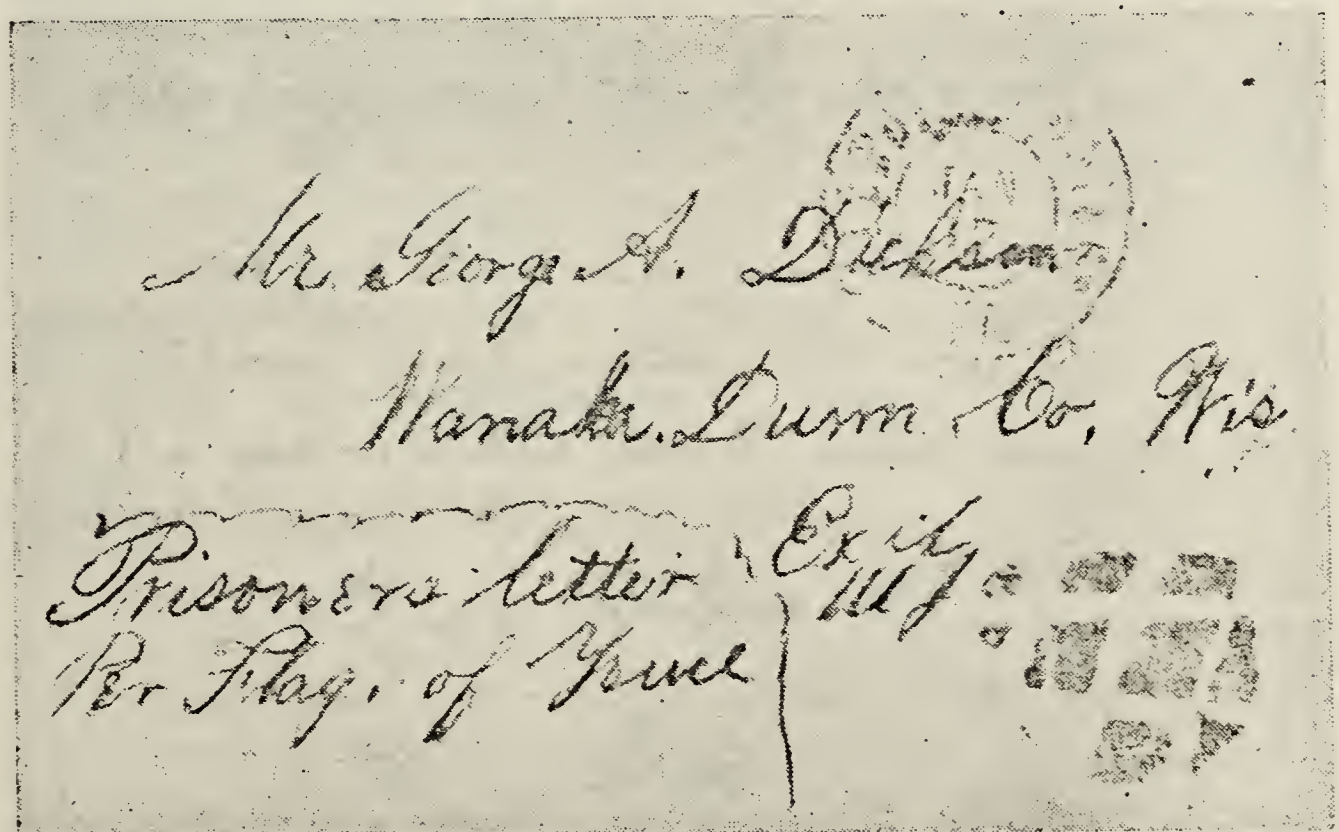 Mr. George A. Dickson
Dunn Co, Wis.
Prisoners letter
Per Flag. of Truce
Ex
JAN